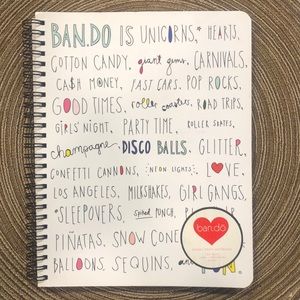 BAN.DO IS UNICORNS,* HEARTS,
COTTON CANDY, giant gems, CARNIVALS,
CA$H MONEY, FAST CARS, POP ROCKS,
GOOD TIMES, roller coasters, ROAD TRIPS,
GIRLS' NIGHT, PARTY TIME, ROLLER SKATES,
champagne, DISCO BALLS, GLITTER,
CONFETTI CANNONS, NEON LIGHTS, LOVE,
LOS ANGELES, MILKSHAKES, GIRL GANGS,
*SLEEPOVERS, Spiked PUNCH,
PIÑATAS, SNOW CONE
BALLOONS, SEQUINS, and FUN.
ban.dō